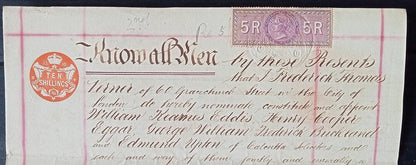 2nd
5R 5R
Know all Men by these Presents
TEN SHILLINGS
that I Frederick Thomas
Verner of 60 Gracechurch Street in the City of
London do hereby nominate constitute and appoint
William Keamus Eddis, Henry Cooper
Eggar, George William Frederick Buckland
and Edmund Upton of Calcutta Solicitors and
each and any of them jointly and severally